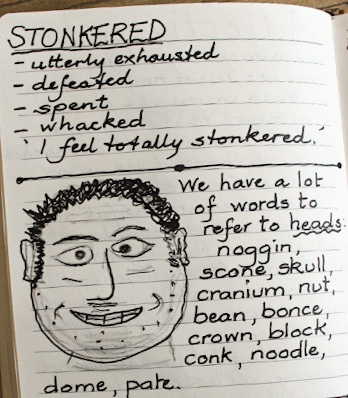 STONKERED
- utterly exhausted
- defeated
- spent
- whacked
'I feel totally stonkered.'
We have a lot
of words to
refer to heads:
noggin,
scone, skull,
cranium, nut,
bean, bonce,
crown, block,
conk, noodle,
dome, pate.